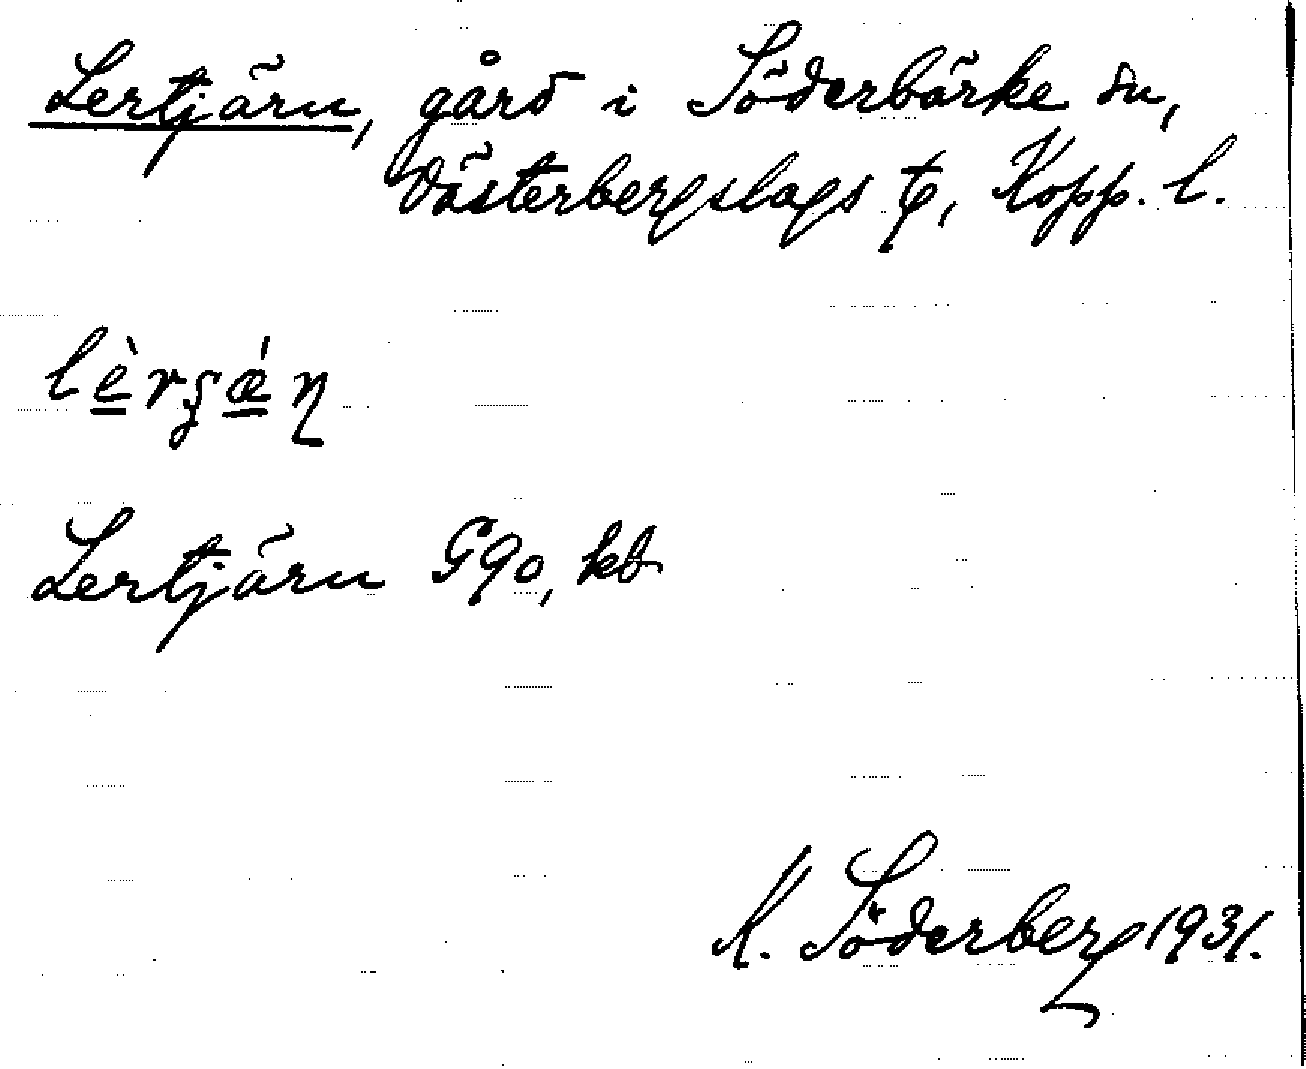 Lertjärn, gård i Söderbärke sn,
Västerbergslags tg, Kopp. l.
lèrʂǽɳ
Lertjärn G90, kb
K. Söderberg 1931.